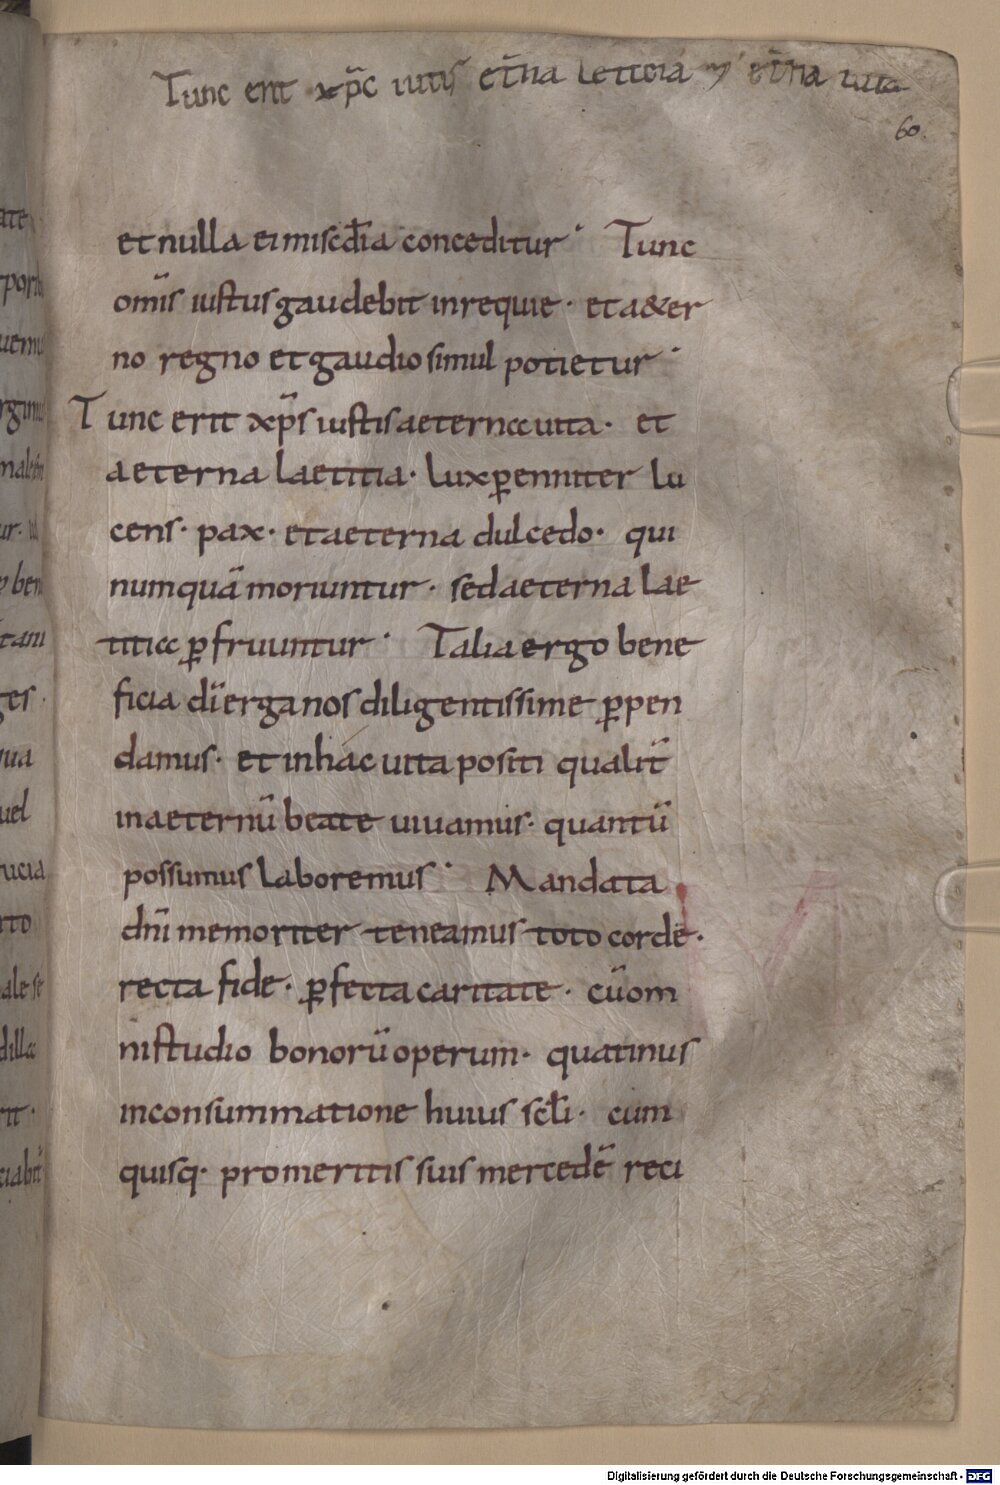 Tunc erit xp̄c iutis et̄na leticia et̄na uita
60.
et nulla ei misc̄dia conceditur. Tunc
om̄is iustus gaudebit in requie. et a&er
no regno et gaudio simul potietur.
Tunc erit xp̄s iustis aeterna uita. et
aeterna laetitia. lux ꝑenniter lu
cens. pax. et aeterna dulcedo. qui
numquā moriuntur. sed aeterna lae
titia ꝑfruuntur. Talia ergo bene
ficia dī erga nos diligentissime ꝑpen
damus. et in hac uita positi qualit̄
in aeternū beate uiuamus. quantū
possumus laboremus. Mandata
dn̄i memoriter teneamus toto corde.
recta fide. ꝑfecta caritate. cū om
ni studio bonorū operum. quatinus
in consummatione huius scl̄i. cum
quisq. pro meritis suis mercedē reci
ate
uemu
ges.
uel
rucia
Digitalisierung gefördert durch die Deutsche Forschungsgemeinschaft - DFG